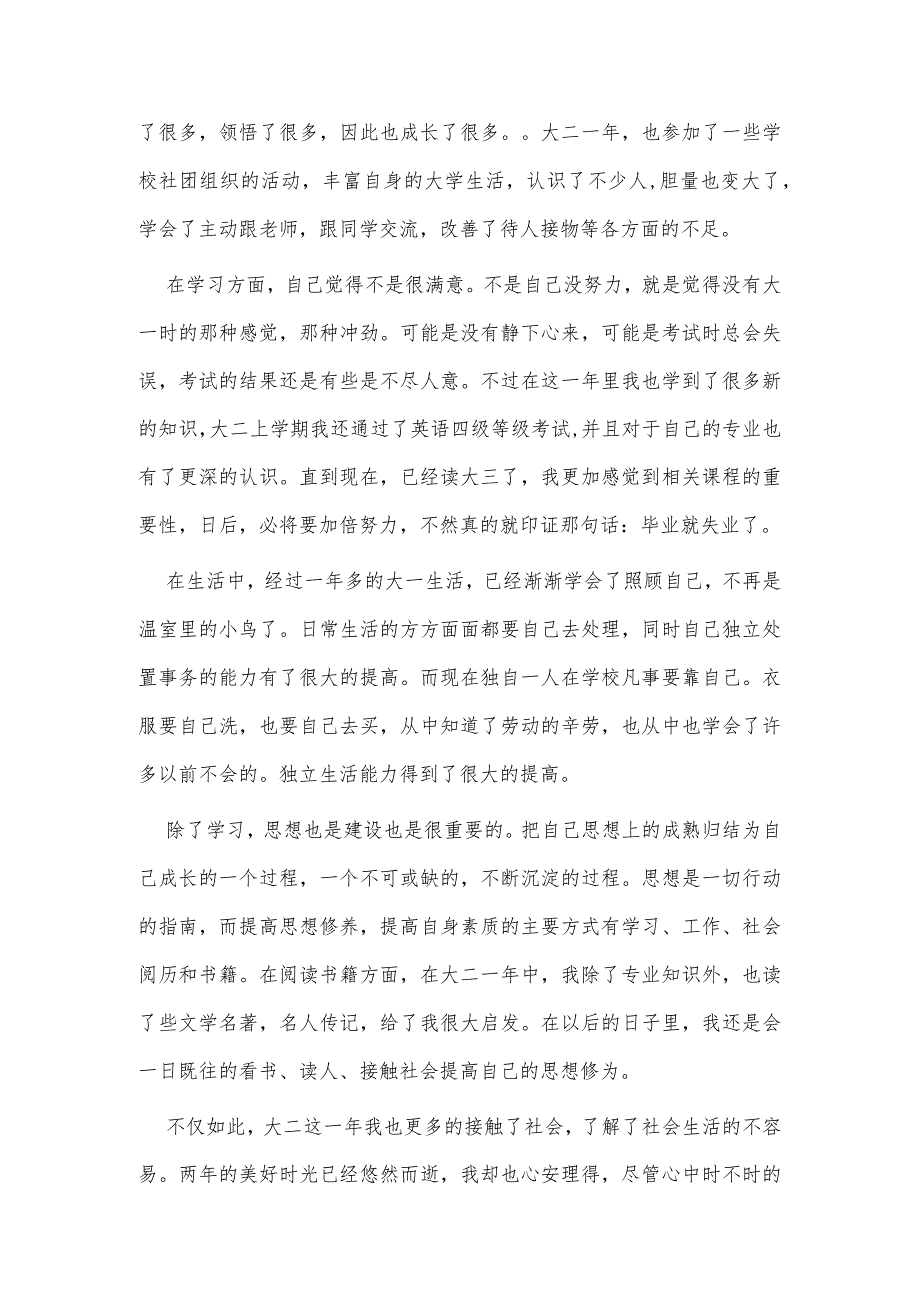 了很多，领悟了很多，因此也成长了很多。。大二一年，也参加了一些学
校社团组织的活动，丰富自身的大学生活，认识了不少人,胆量也变大了，
学会了主动跟老师，跟同学交流，改善了待人接物等各方面的不足。
在学习方面，自己觉得不是很满意。不是自己没努力，就是觉得没有大
一时的那种感觉，那种冲劲。可能是没有静下心来，可能是考试时总会失
误，考试的结果还是有些是不尽人意。不过在这一年里我也学到了很多新
的知识,大二上学期我还通过了英语四级等级考试,并且对于自己的专业也
有了更深的认识。直到现在，已经读大三了，我更加感觉到相关课程的重
要性，日后，必将要加倍努力，不然真的就印证那句话：毕业就失业了。
在生活中，经过一年多的大一生活，已经渐渐学会了照顾自己，不再是
温室里的小鸟了。日常生活的方方面面都要自己去处理，同时自己独立处
置事务的能力有了很大的提高。而现在独自一人在学校凡事要靠自己。衣
服要自己洗，也要自己去买，从中知道了劳动的辛劳，也从中也学会了许
多以前不会的。独立生活能力得到了很大的提高。
除了学习，思想也是建设也是很重要的。把自己思想上的成熟归结为自
己成长的一个过程，一个不可或缺的，不断沉淀的过程。思想是一切行动
的指南，而提高思想修养，提高自身素质的主要方式有学习、工作、社会
阅历和书籍。在阅读书籍方面，在大二一年中，我除了专业知识外，也读
了些文学名著，名人传记，给了我很大启发。在以后的日子里，我还是会
一日既往的看书、读人、接触社会提高自己的思想修为。
不仅如此，大二这一年我也更多的接触了社会，了解了社会生活的不容
易。两年的美好时光已经悠然而逝，我却也心安理得，尽管心中时不时的